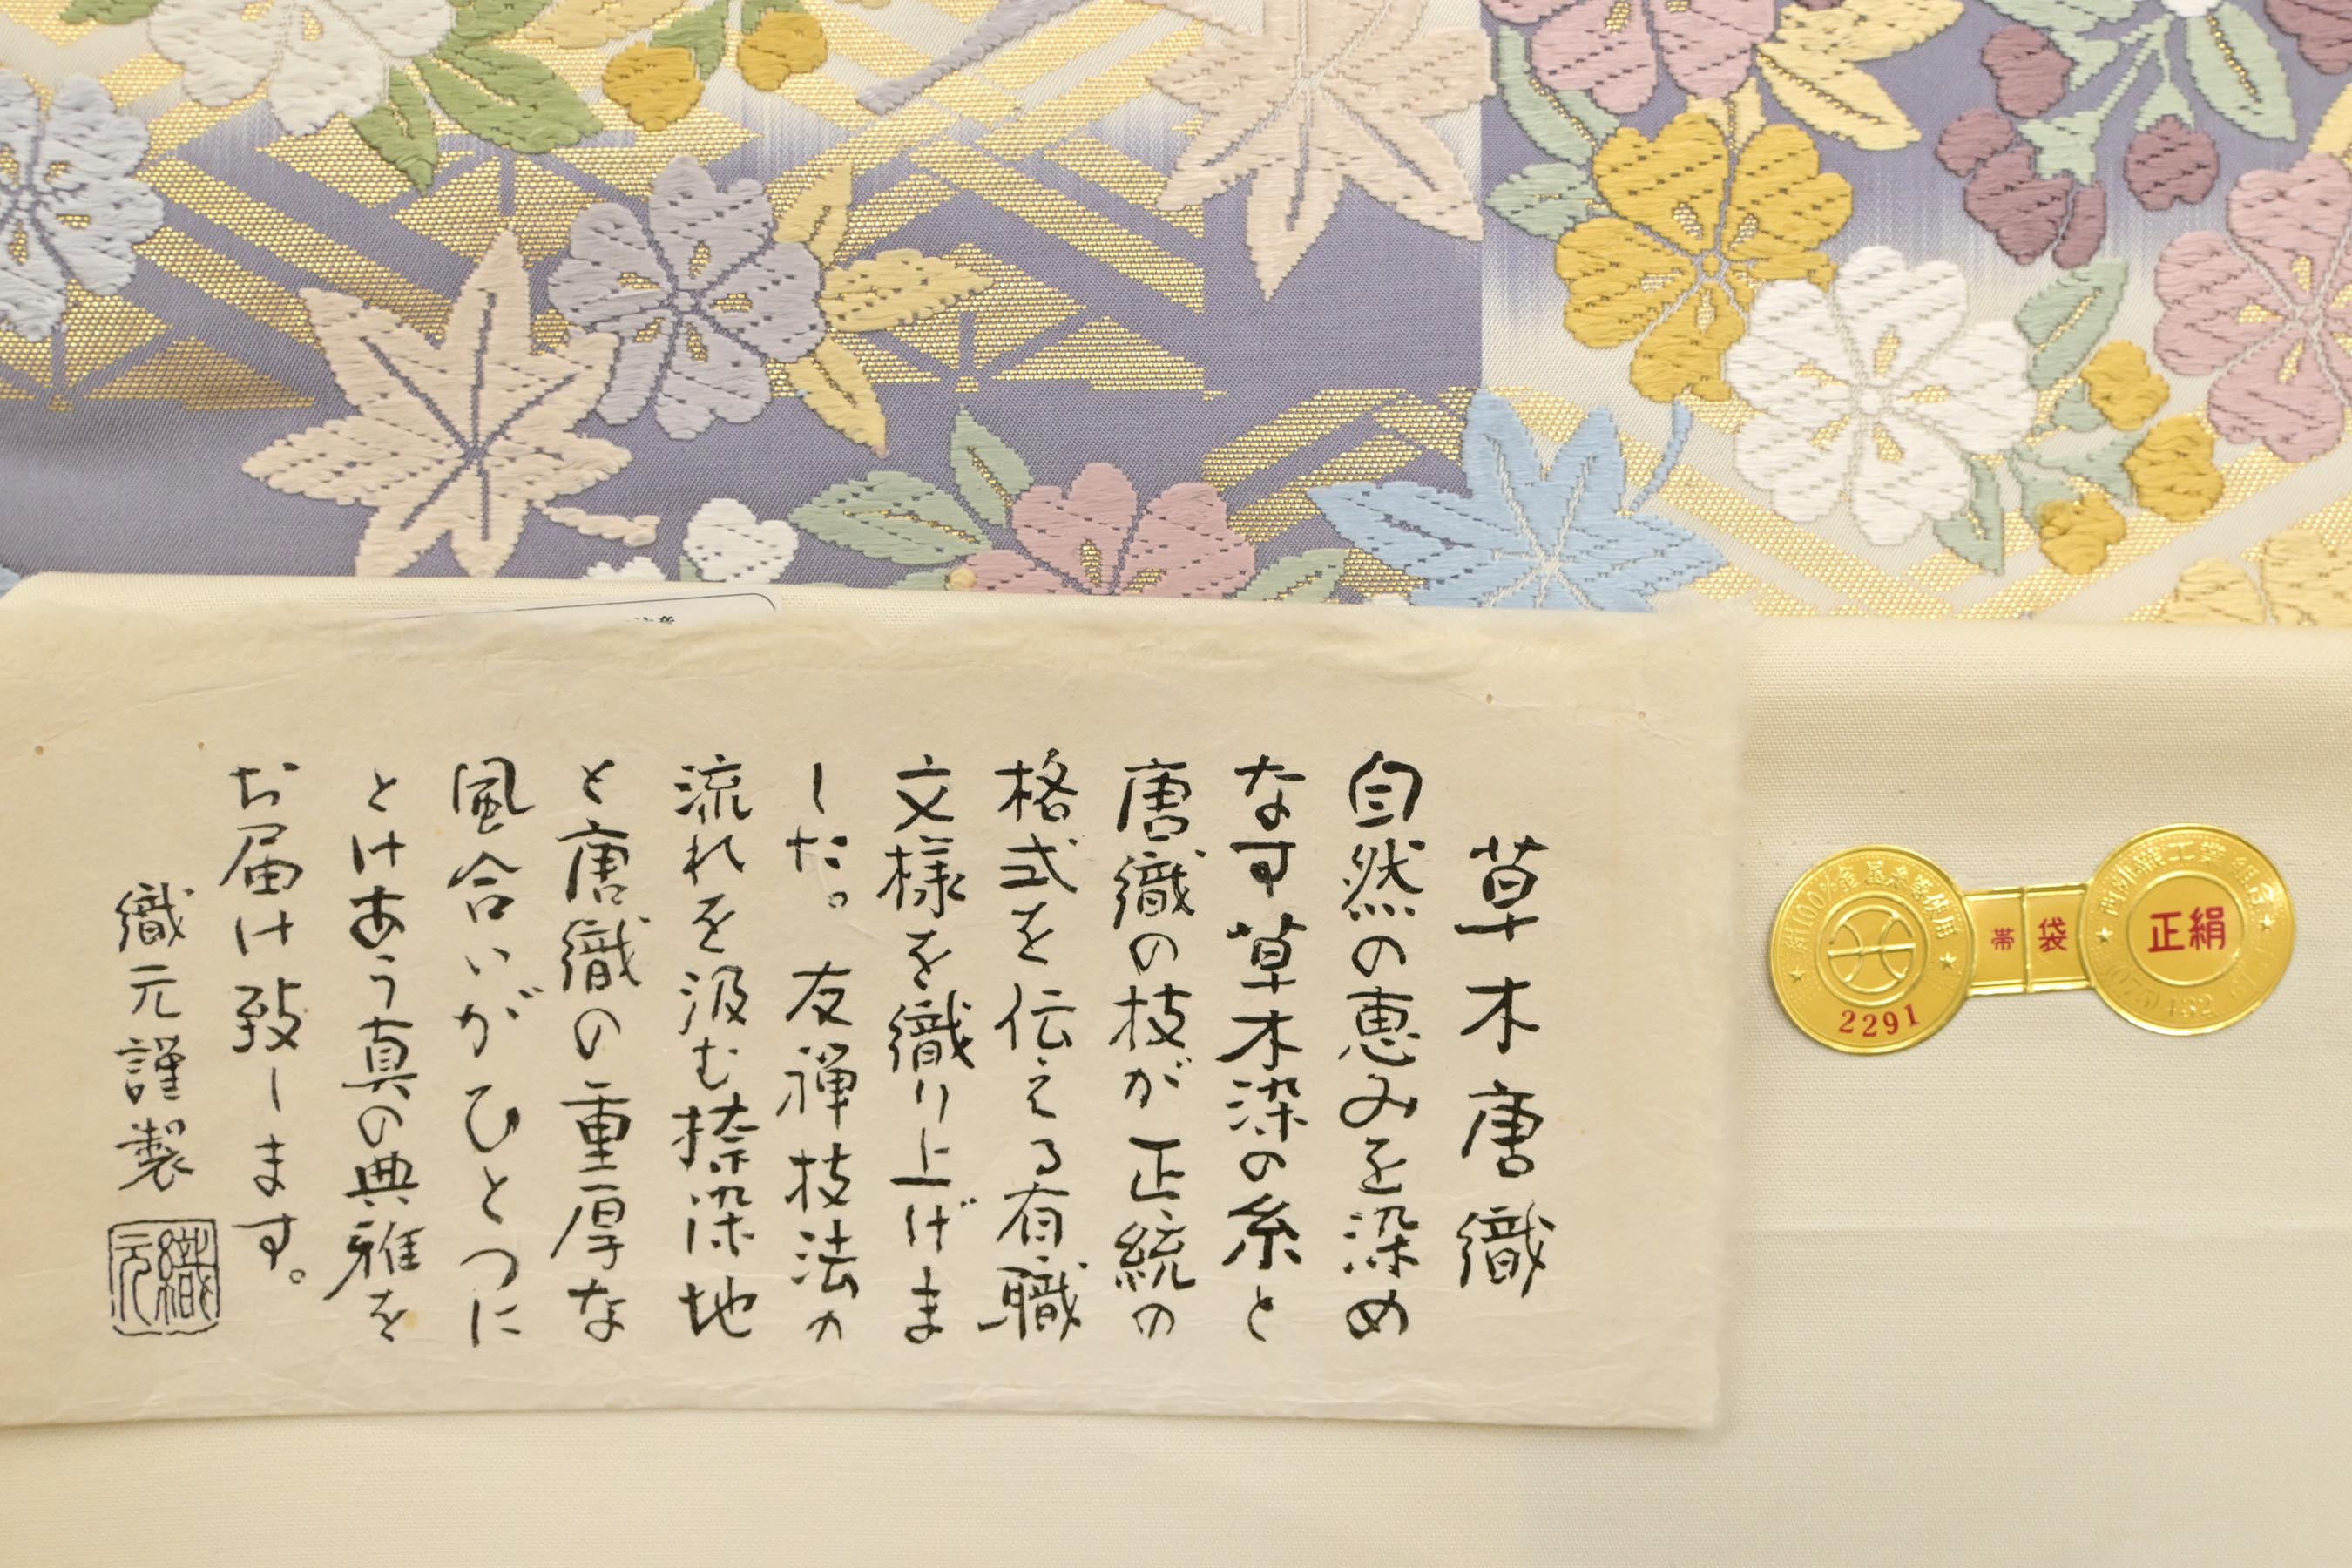 草木唐織
自然の恵みを染め
なす草木染の糸と
唐織の技が正統の
格式を伝える有職
文様を織り上げま
した。友禅技法の
流れを汲む捺染地
と唐織の重厚な
風合いがひとつに
とけあう真の典雅を
お届け致します。
織元謹製
織元
正絹
袋帯
2291